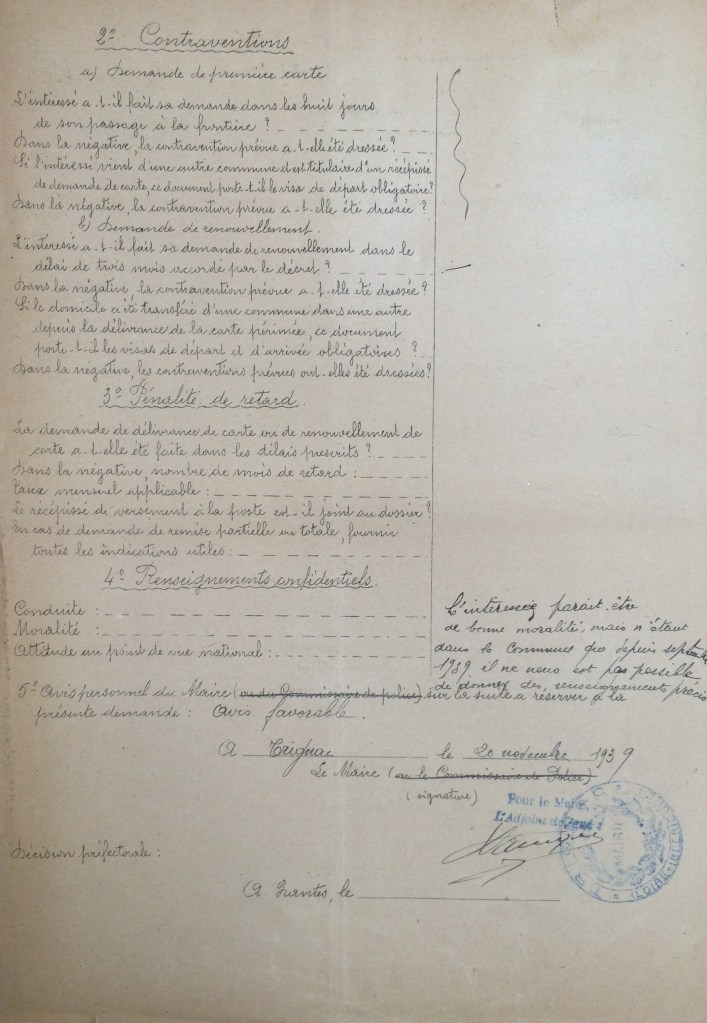 2º Contraventions
a) Demande de première carte
L'intéressé a-t-il fait sa demande dans les huit jours
de son passage à la frontière ?
Dans la négative, la contravention prévue a-t-elle été dressée ?
Si l'intéressé vient d'une autre commune et est titulaire d'un récépissé
de demande de carte, ce document porte-t-il le visa de départ obligatoire ?
Dans la négative, la contravention prévue a-t-elle été dressée ?
b) Demande de renouvellement.
L'intéressé a-t-il fait sa demande de renouvellement dans le
délai de trois mois accordé par le décret ?
Dans la négative, la contravention prévue a-t-elle été dressée ?
Si le domicile a été transféré d'une commune dans une autre
depuis la délivrance de la carte périmée, ce document
porte-t-il les visas de départ et d'arrivée obligatoires ?
Dans la négative, les contraventions prévues ont-elles été dressées ?
3º Pénalité de retard.
La demande de délivrance de carte ou de renouvellement de
carte a-t-elle été faite dans les délais prescrits ?
Dans la négative, nombre de mois de retard :
Taux mensuel applicable :
Le récépissé de versement à la poste est-il joint au dossier ?
En cas de demande de remise partielle ou totale, fournir
toutes les indications utiles :
4º Renseignements confidentiels.
Conduite :
Moralité :
Attitude au point de vue national :
L'interessé parait être
de bonne moralité, mais n'étant
dans la Commune que depuis septembre
1939 il ne nous est pas possible
de donner des renseignements précis
5º Avis personnel du Maire (ou du Commissaire de police) sur la suite à réserver à la
présente demande : Avis favorable.
A Trignac le 20 novembre 1939
Le Maire (ou le Commissaire de Police)
(signature)
Pour le Maire,
L'Adjoint délégué
MAIRIE
TRIGNAC
(LOIRE-INFRE)
Décision préfectorale :
A Nantes, le